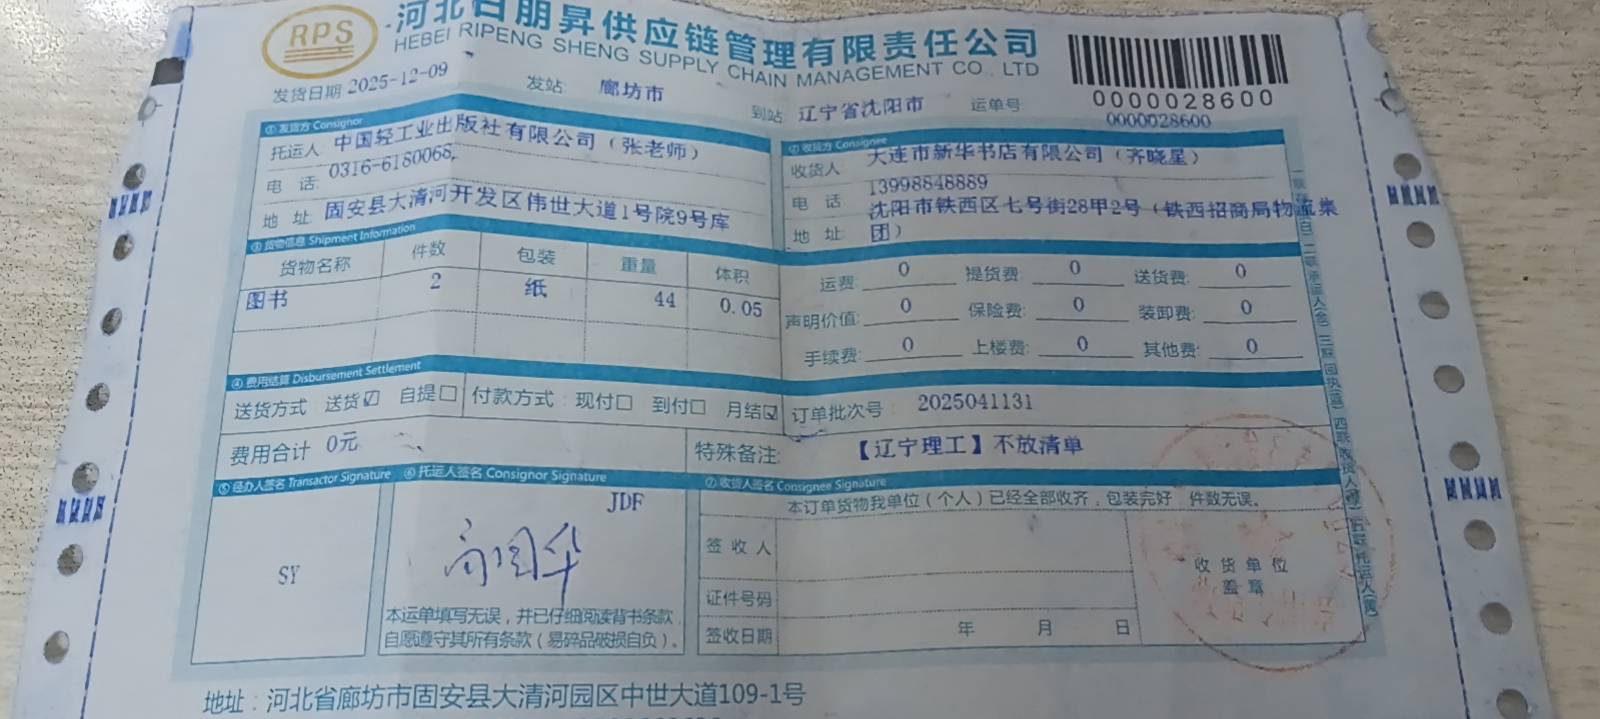 RPS
河北日朋昇供应链管理有限责任公司
HEBEI RIPENG SHENG SUPPLY CHAIN MANAGEMENT CO., LTD
发货日期 2025-12-09 发站: 廊坊市 到站: 辽宁省沈阳市 运单号
0000028600
0000028600
①发货方 Consignor
托运人 中国轻工业出版社有限公司（张老师）
电 话: 0316-6180068,
地 址: 固安县大清河开发区伟世大道1号院9号库
②收货方 Consignee
收货人 大连市新华书店有限公司（齐晓星）
电 话 13998848889
地 址 沈阳市铁西区七号街28甲2号（铁西招商局物流集
团）
③货物信息 Shipment Information
货物名称 件数 包装 重量 体积
图书 2 纸 44 0.05
运费: 0 提货费: 0 送货费: 0
声明价值: 0 保险费: 0 装卸费: 0
手续费: 0 上楼费: 0 其他费: 0
④费用结算 Disbursement Settlement
送货方式 送货☑ 自提□ 付款方式: 现付□ 到付□ 月结☑ 订单批次号 2025041131
费用合计 0元 特殊备注: 【辽宁理工】不放清单
⑤经办人签名 Transactor Signature
SY
⑥托运人签名 Consignor Signature
JDF
本运单填写无误，并已仔细阅读背书条款，
自愿遵守其所有条款（易碎品破损自负）。
⑦收货人签名 Consignee Signature
本订单货物我单位（个人）已经全部收齐，包装完好 件数无误。
签 收 人
证件号码
签收日期 年 月 日
收货单位
盖章
地址：河北省廊坊市固安县大清河园区中世大道109-1号